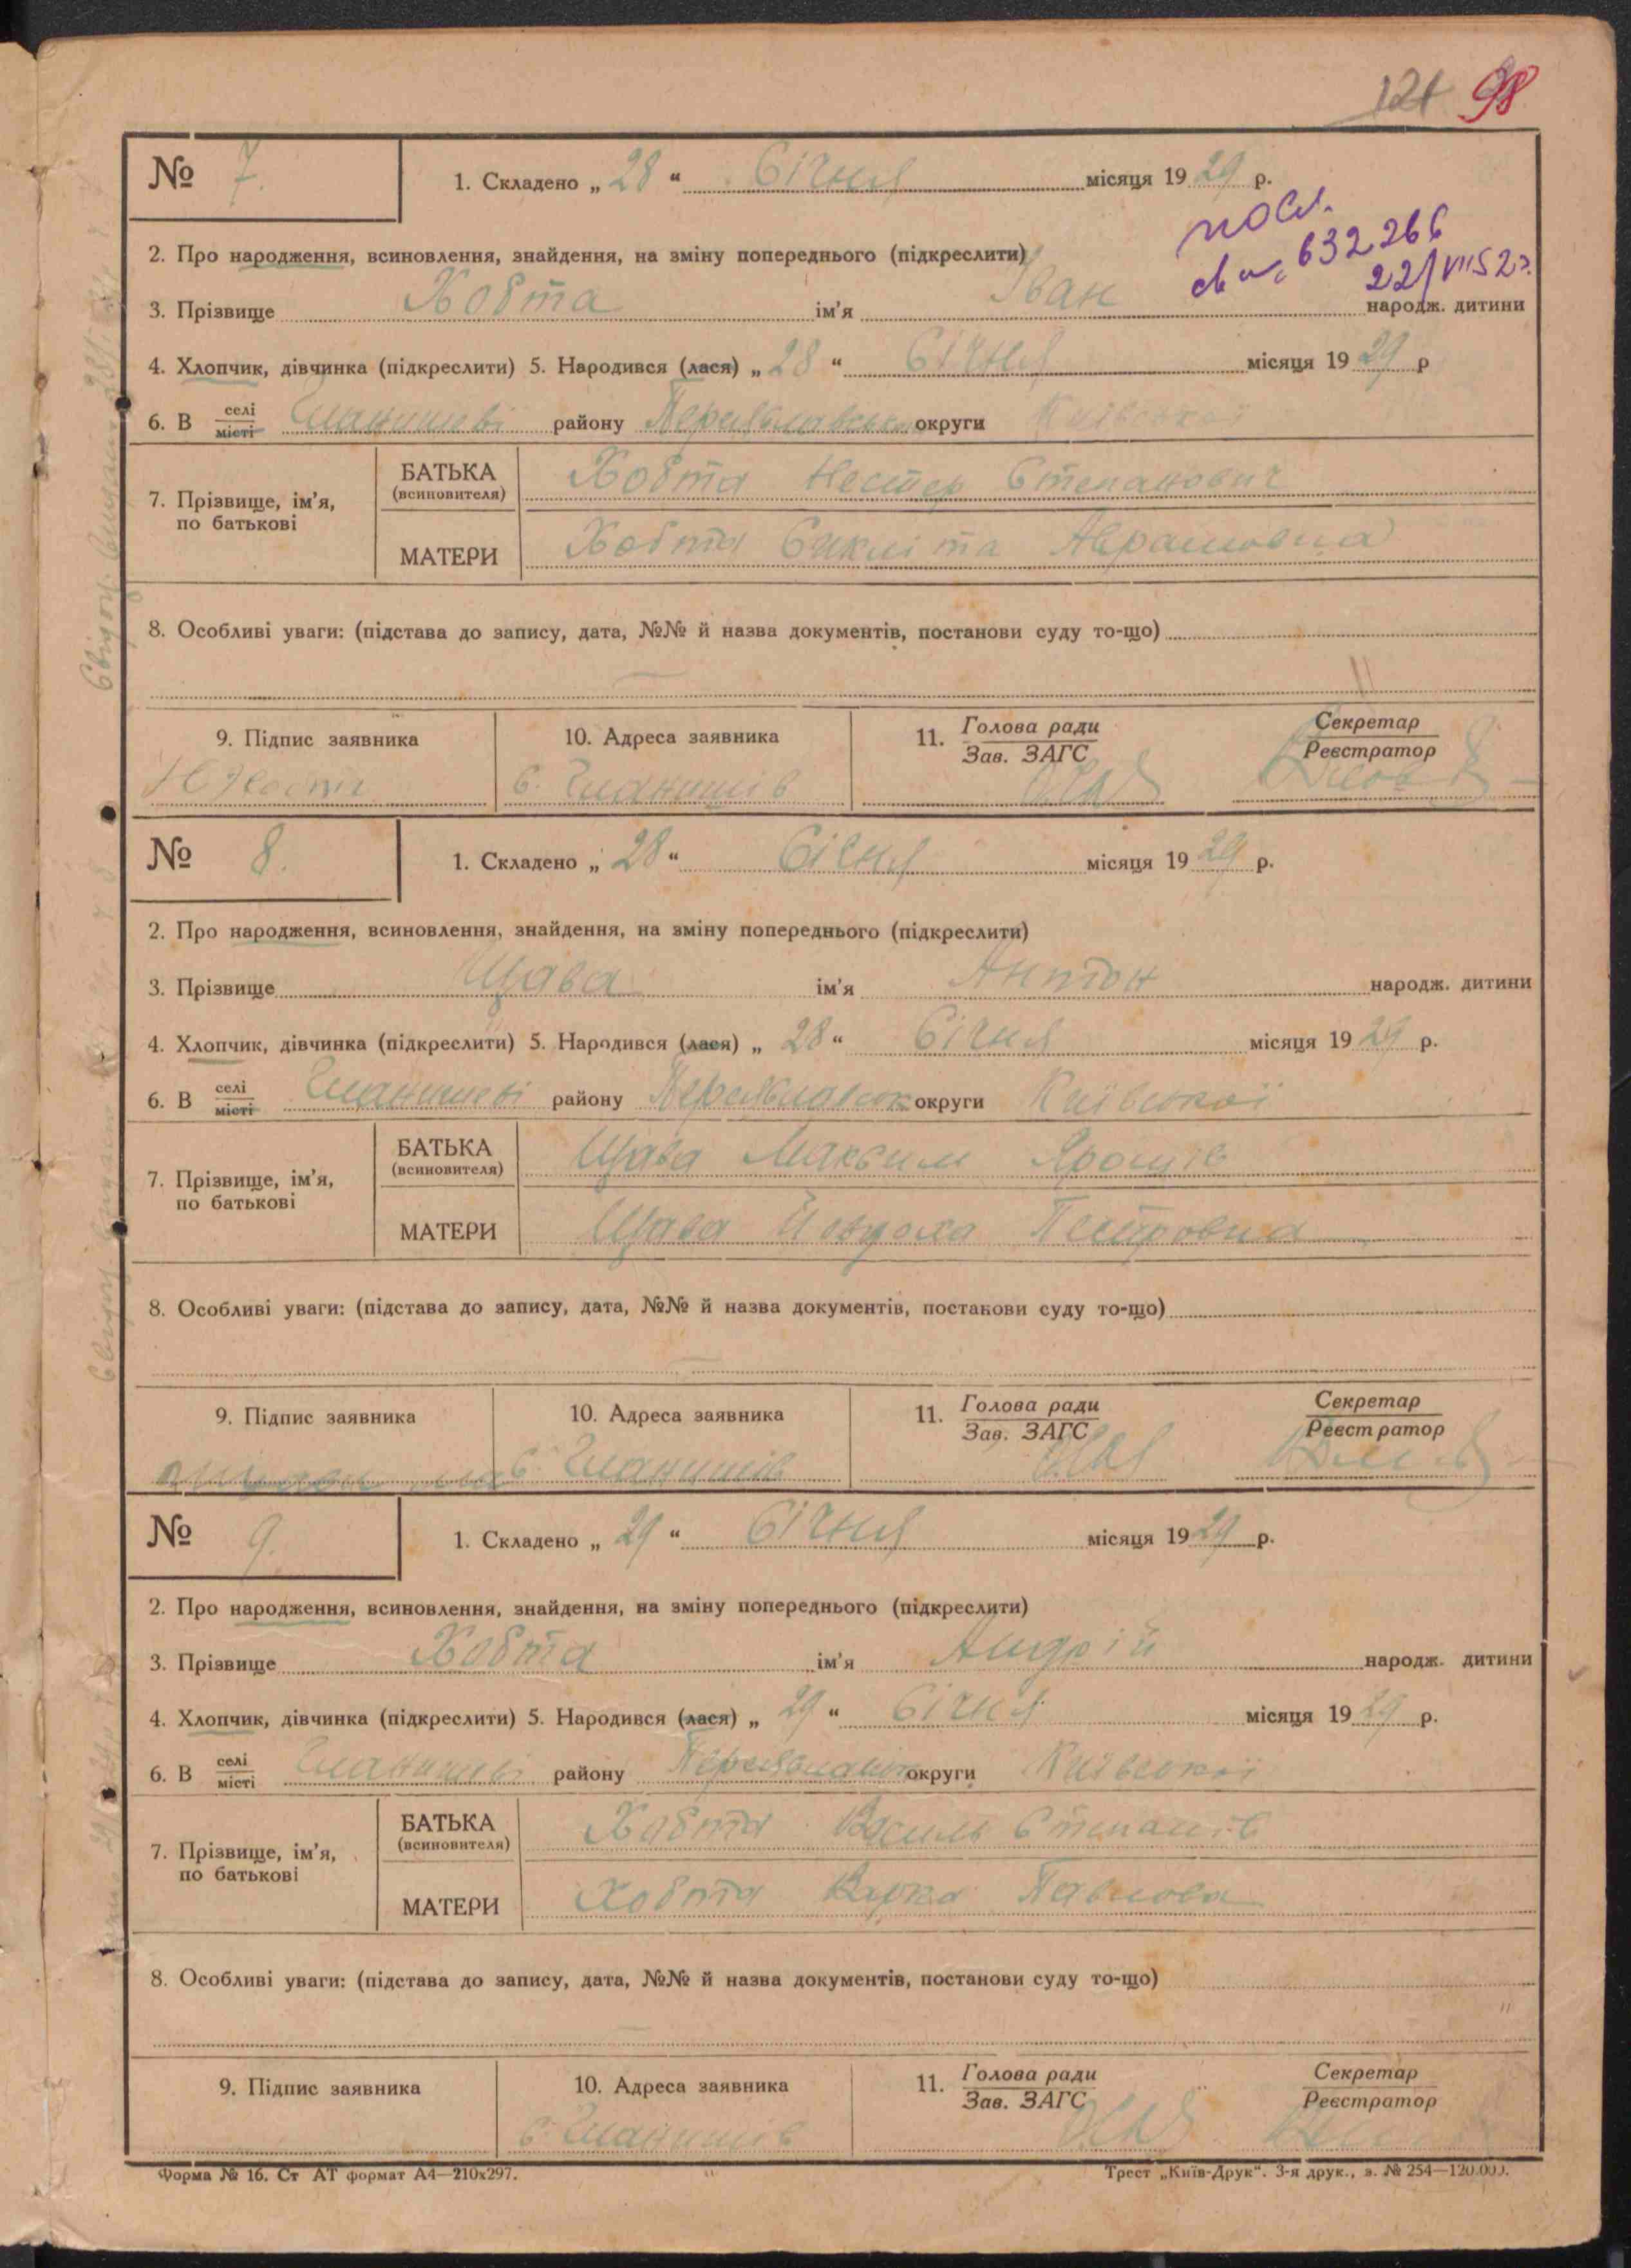 121 98
№ 7. 1. Складено „ 28 “ Січня місяця 1929 р.
посл.
св. 632266
22/VII 52 г.
2. Про народження, всиновлення, знайдення, на зміну попереднього (підкреслити)
3. Прізвище Хобта ім'я Іван народж. дитини
4. Хлопчик, дівчинка (підкреслити) 5. Народився (лася) „ 28 “ Січня місяця 1929 р
6. В селі місті району Переяславськ округи Київської
7. Прізвище, ім'я, по батькові
БАТЬКА (всиновителя) Хобта Нестер Степанович
МАТЕРИ Хобта Аврамовна
8. Особливі уваги: (підстава до запису, дата, №№ й назва документів, постанови суду то-що)
9. Підпис заявника 10. Адреса заявника 11. Голова ради Зав. ЗАГС Секретар Реєстратор
Н Хобта с.
№ 8. 1. Складено „ 28 “ Січня місяця 1929 р.
2. Про народження, всиновлення, знайдення, на зміну попереднього (підкреслити)
3. Прізвище Щава ім'я Антон народж. дитини
4. Хлопчик, дівчинка (підкреслити) 5. Народився (лася) „ 28 “ Січня місяця 1929 р.
6. В селі місті району Переяславськ округи Київської
7. Прізвище, ім'я, по батькові
БАТЬКА (всиновителя) Щава Максим
МАТЕРИ Щава Петровна
8. Особливі уваги: (підстава до запису, дата, №№ й назва документів, постанови суду то-що)
9. Підпис заявника 10. Адреса заявника 11. Голова ради Зав. ЗАГС Секретар Реєстратор
с.
№ 9. 1. Складено „ 29 “ Січня місяця 1929 р.
2. Про народження, всиновлення, знайдення, на зміну попереднього (підкреслити)
3. Прізвище Хобта ім'я Андрій народж. дитини
4. Хлопчик, дівчинка (підкреслити) 5. Народився (лася) „ 29 “ Січня місяця 1929 р.
6. В селі місті району Переяславськ округи Київської
7. Прізвище, ім'я, по батькові
БАТЬКА (всиновителя) Хобта Василь Степанів
МАТЕРИ Хобта Варка Павлова
8. Особливі уваги: (підстава до запису, дата, №№ й назва документів, постанови суду то-що)
9. Підпис заявника 10. Адреса заявника 11. Голова ради Зав. ЗАГС Секретар Реєстратор
с.
Форма № 16. Ст АТ формат А4—210х297. Трест „Київ-Друк“. 3-я друк., з. № 254—120.000.